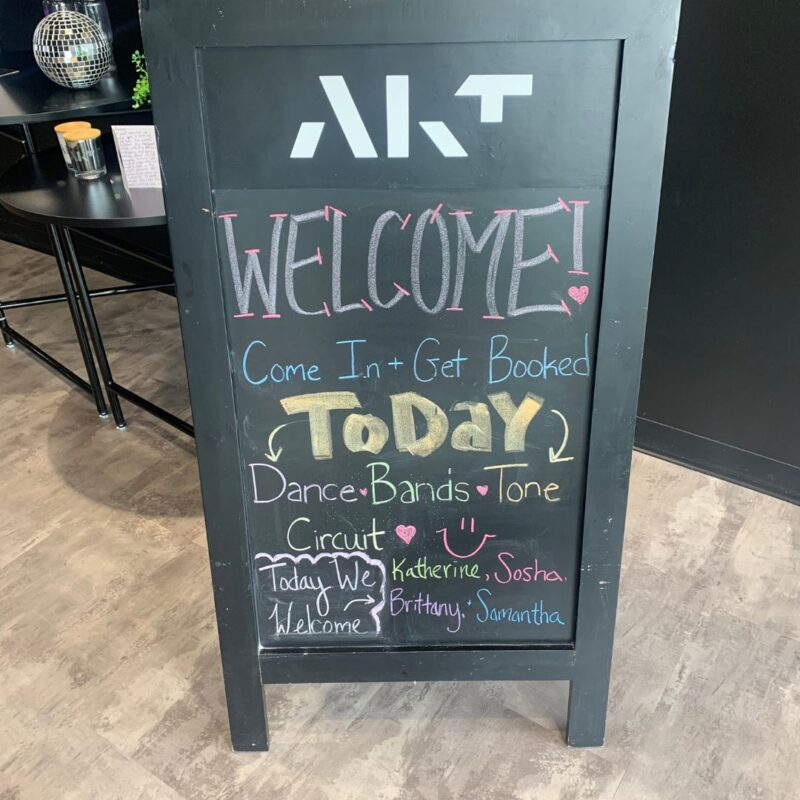 AKT
WELCOME!
Come In + Get Booked
TODAY
Dance Bands Tone
Circuit
Today We
Welcome
Katherine, Sosha,
Brittany, + Samantha